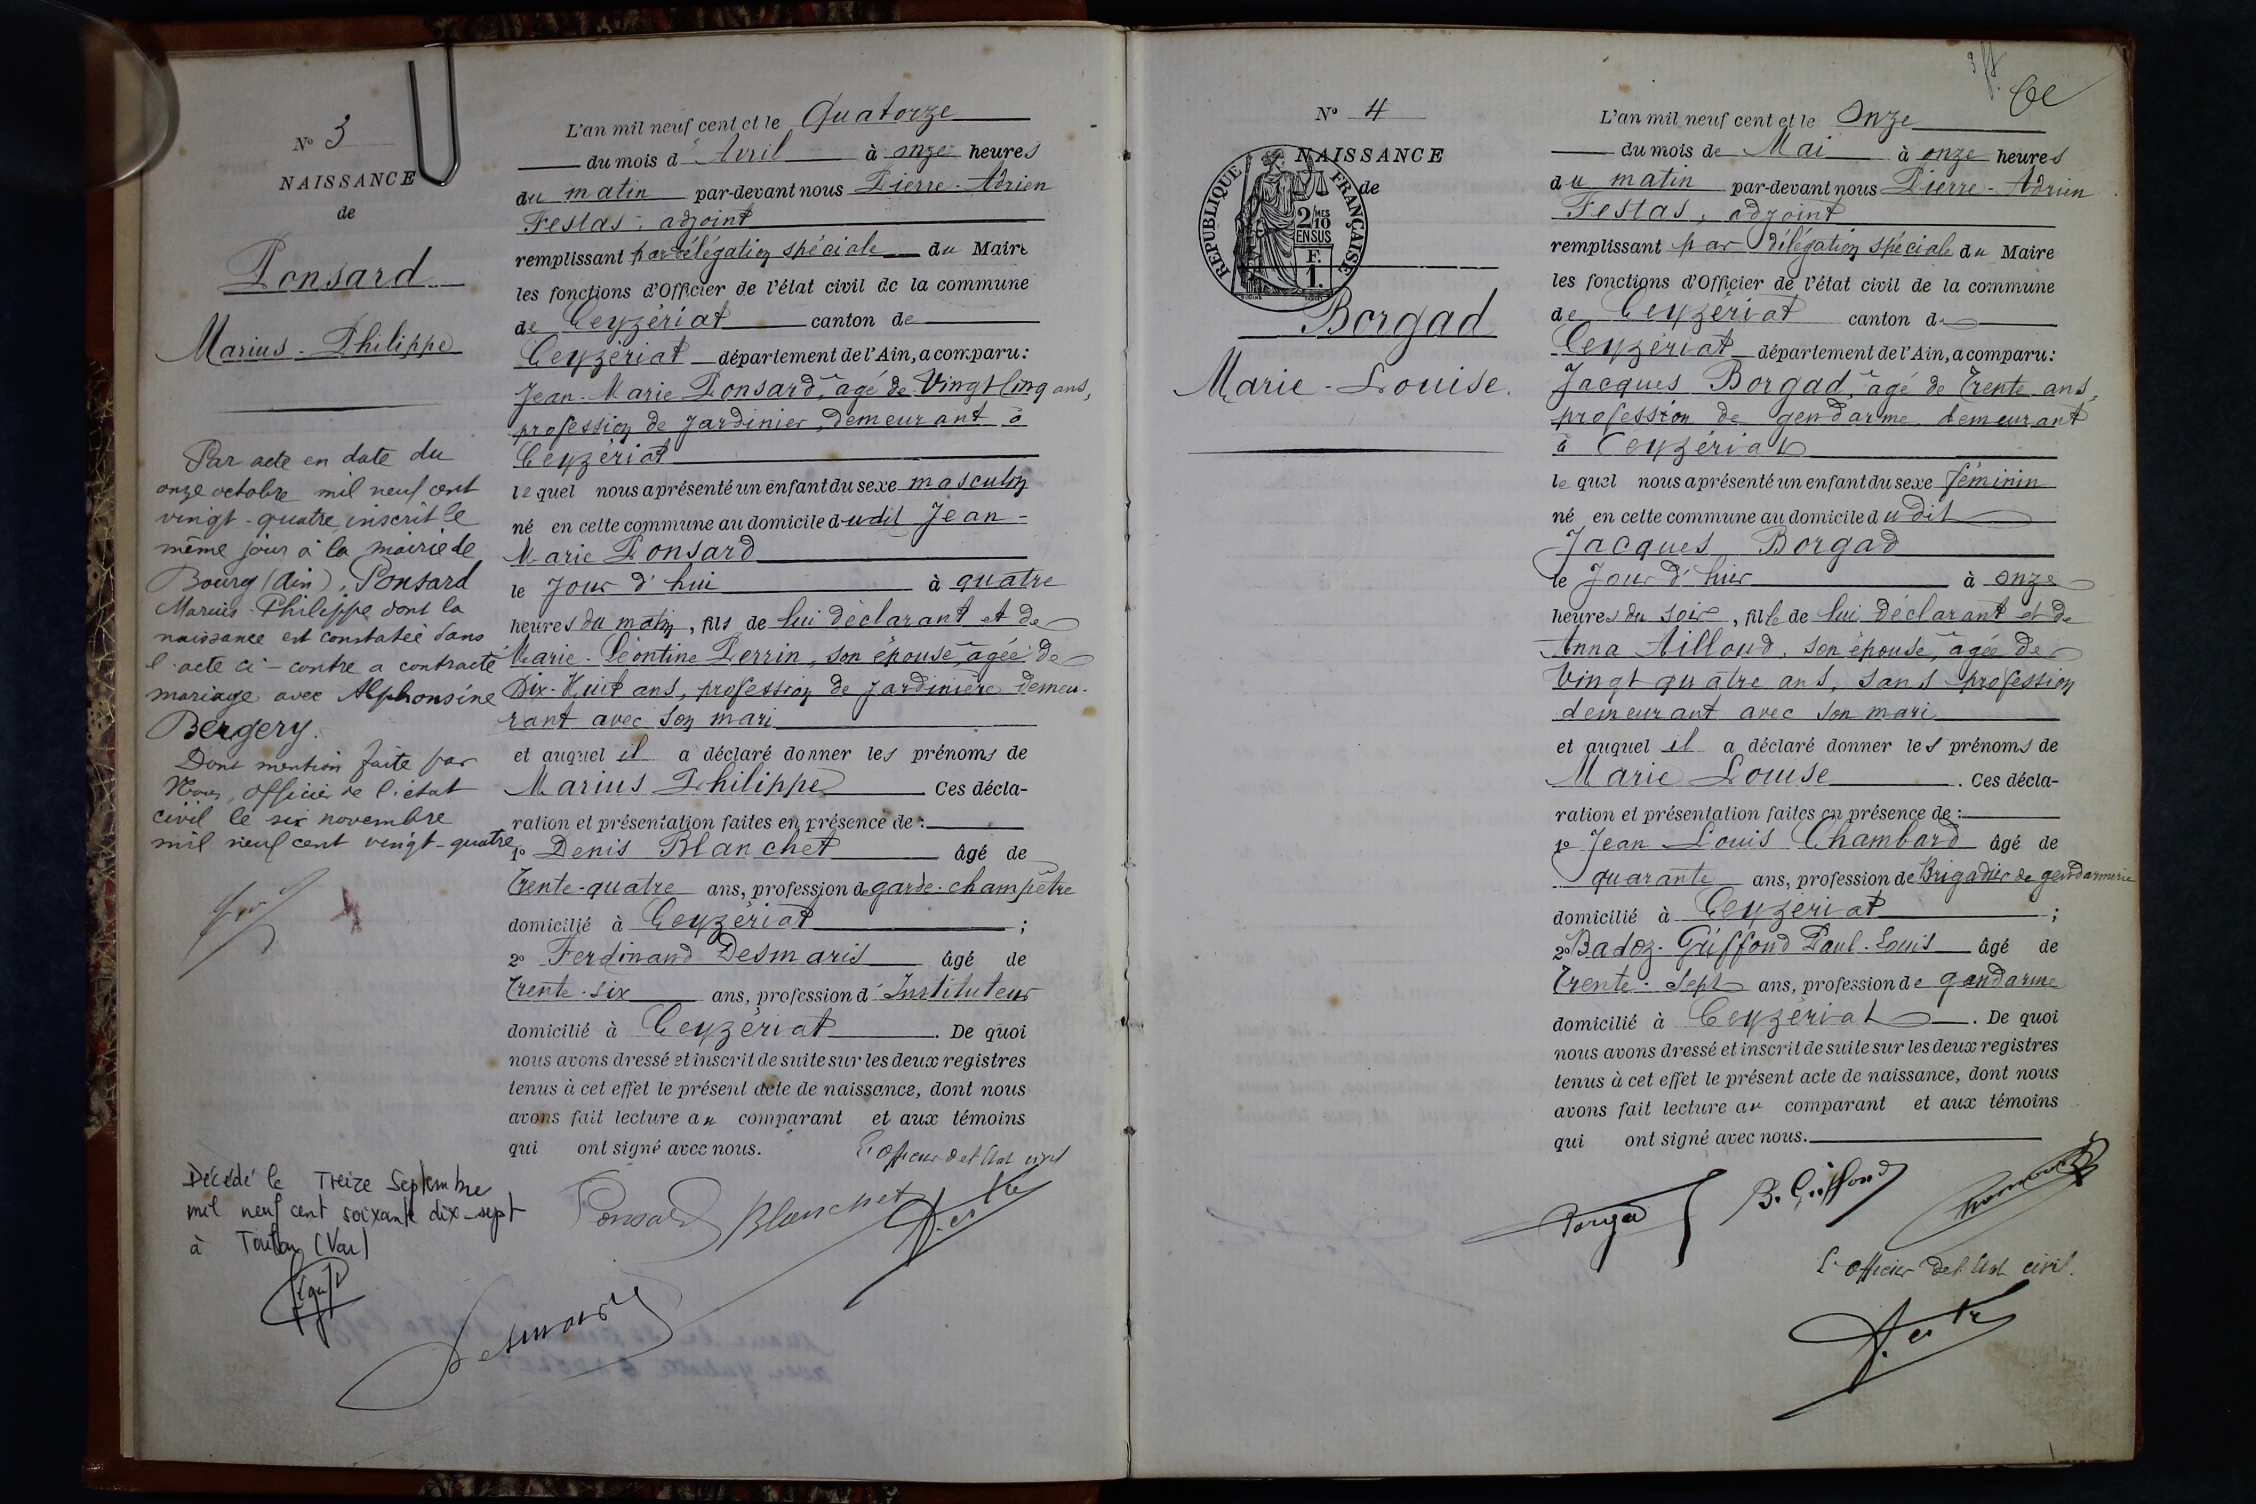 N° 3
NAISSANCE
de
Ponsard
Marius - Philippe
Par acte en date du
onze octobre mil neuf cent
vingt-quatre inscrit le
même jour à la mairie de
Bourg (Ain), Ponsard
Marius-Philippe dont la
naissance est constatée dans
l'acte ci-contre a contracté
mariage avec Alphonsine
Bergery.
Dont mention faite par
Nous, officier de l'état
civil le six novembre
mil neuf cent vingt-quatre
Décédé le Treize Septembre
mil neuf cent soixante dix-sept
à Toulon (Var)
L'an mil neuf cent et le Quatorze
du mois d'Avril à onze heures
du matin par-devant nous Pierre-Adrien
Festas, adjoint
remplissant par délégation spéciale du Maire
les fonctions d'Officier de l'état civil de la commune
de Ceyzériat canton de
Ceyzériat département de l'Ain, a comparu:
Jean-Marie Ponsard, âgé de Vingt Cinq ans,
profession de Jardinier, demeurant à
Ceyzériat
lequel nous a présenté un enfant du sexe masculin
né en cette commune au domicile dudit Jean-
Marie Ponsard
le Jour d'hui à quatre
heures du matin, fils de lui déclarant et de
Marie-Léontine Perrin, son épouse, âgée de
Dix-Huit ans, profession de Jardinière demeu-
rant avec son mari
et auquel il a déclaré donner les prénoms de
Marius Philippe Ces décla-
ration et présentation faites en présence de :
1° Denis Blanchet âgé de
Trente-quatre ans, profession de garde-champêtre
domicilié à Ceyzériat ;
2° Ferdinand Desmaris âgé de
Trente-six ans, profession d'Instituteur
domicilié à Ceyzériat . De quoi
nous avons dressé et inscrit de suite sur les deux registres
tenus à cet effet le présent acte de naissance, dont nous
avons fait lecture au comparant et aux témoins
qui ont signé avec nous. L'officier de l'état civil
Ponsard Blanchet
Desmaris
N° 4
NAISSANCE
de
REPUBLIQUE FRANÇAISE
2/10 MES
EN SUS
F.
1.
Borgad
Marie-Louise.
L'an mil neuf cent et le Onze
du mois de Mai à onze heures
du matin par-devant nous Pierre-Adrien
Festas, adjoint
remplissant par délégation spéciale du Maire
les fonctions d'Officier de l'état civil de la commune
de Ceyzériat canton de
Ceyzériat département de l'Ain, a comparu:
Jacques Borgad, âgé de Trente ans,
profession de gendarme demeurant
à Ceyzériat
lequel nous a présenté un enfant du sexe féminin
né en cette commune au domicile dudit
Jacques Borgad
le Jour d'hier à onze
heures du soir, fille de lui déclarant et de
Anna Ailloud, son épouse, âgée de
Vingt quatre ans, sans profession
demeurant avec son mari
et auquel il a déclaré donner les prénoms de
Marie Louise . Ces décla-
ration et présentation faites en présence de :
1° Jean Louis Chambard âgé de
quarante ans, profession de Brigadier de gendarmerie
domicilié à Ceyzériat ;
2° Badoz-Griffond Paul-Louis âgé de
Trente-Sept ans, profession de gendarme
domicilié à Ceyzériat . De quoi
nous avons dressé et inscrit de suite sur les deux registres
tenus à cet effet le présent acte de naissance, dont nous
avons fait lecture au comparant et aux témoins
qui ont signé avec nous.
B. Griffond
L'officier de l'état civil.